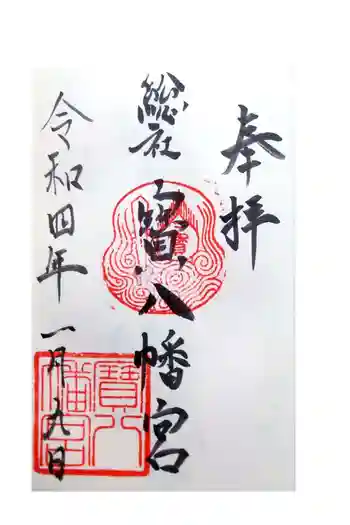 奉拝
総社 寳八幡宮
令和四年 一月九日
寳八
幡宮